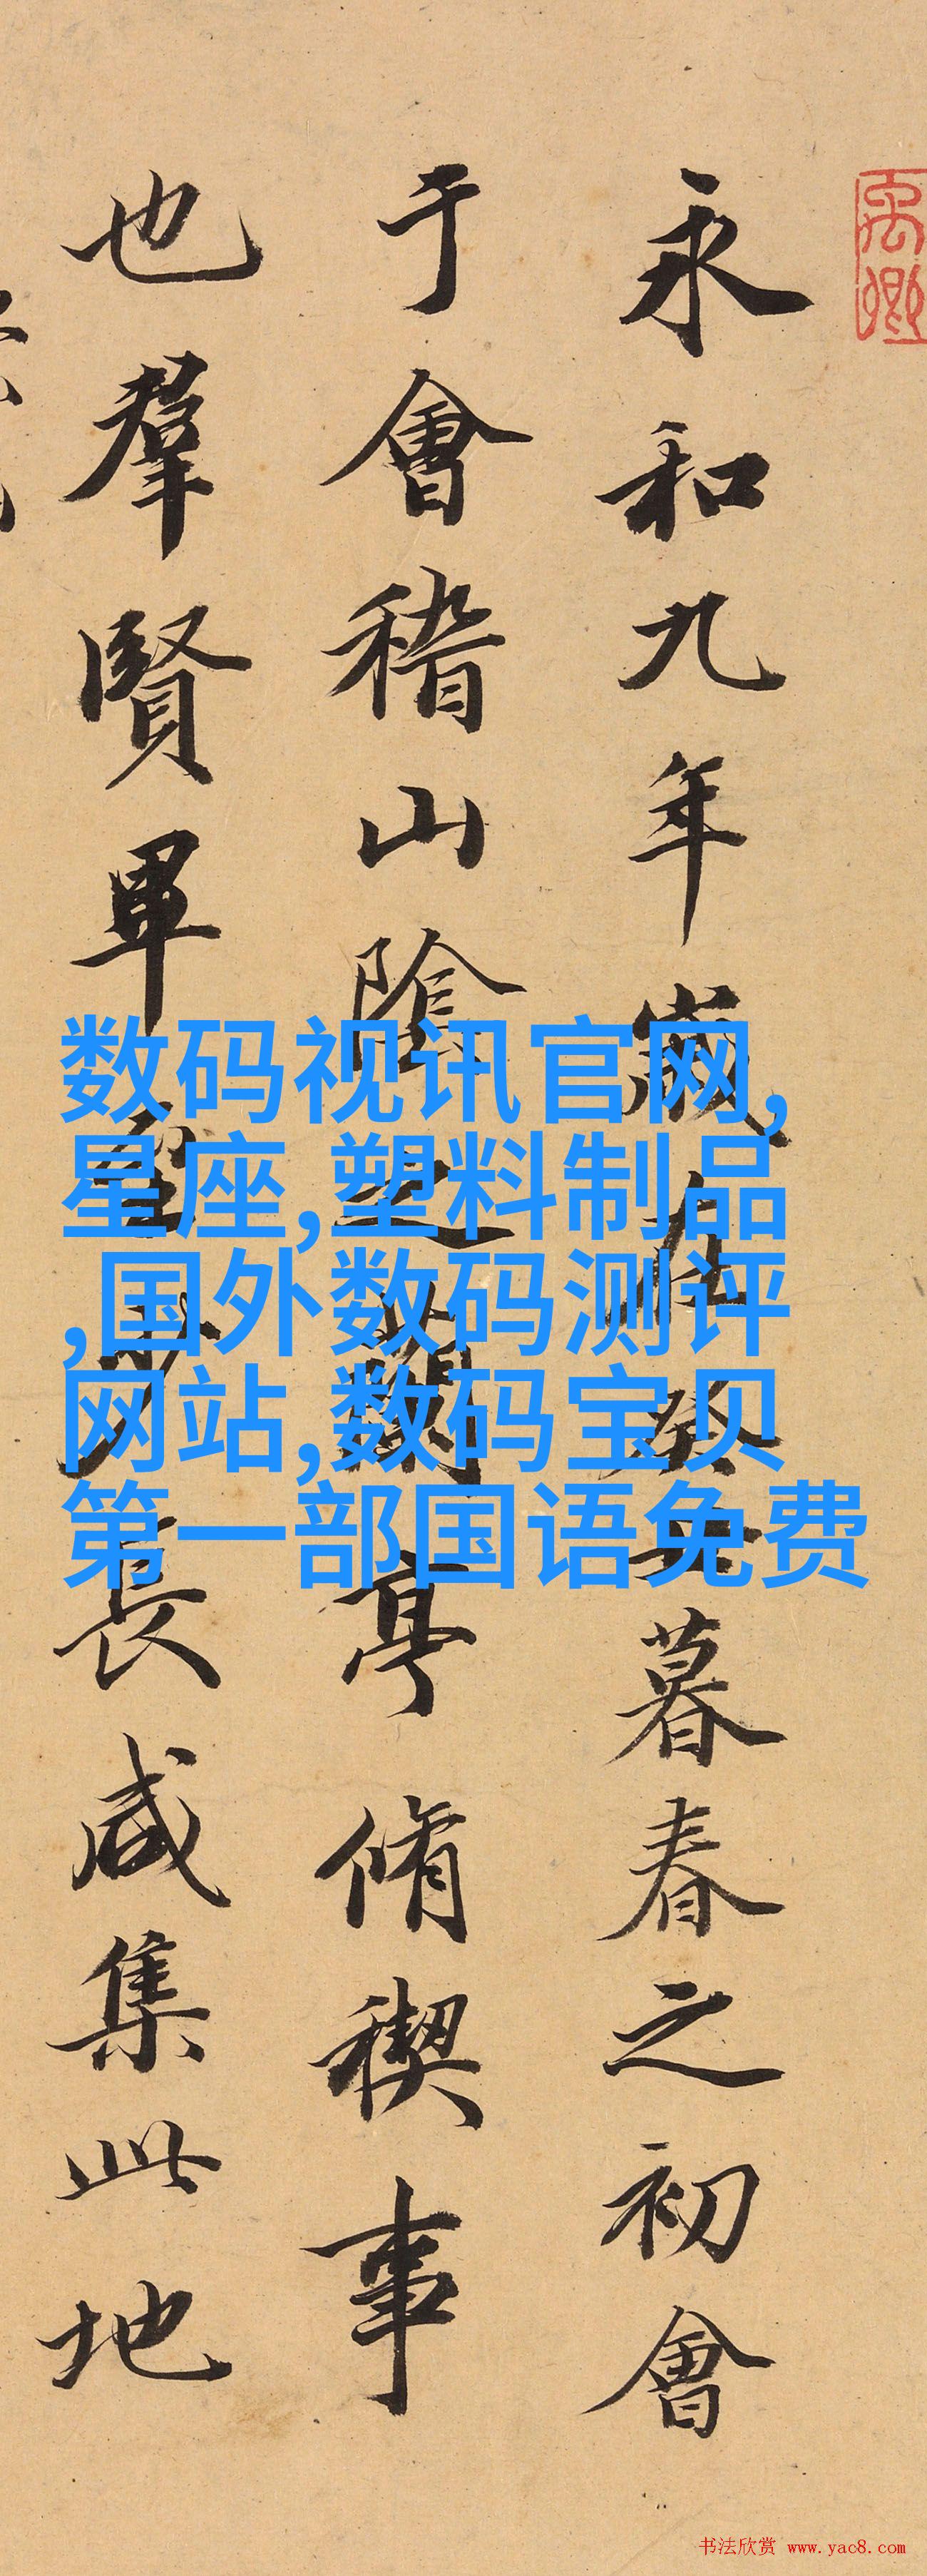 永和九年歲在癸丑暮春之初會
于會稽山陰之蘭亭脩稧事
也羣賢畢至少長咸集此地
数码视讯官网,
星座,塑料制品
,国外数码测评
网站,数码宝贝
第一部国语免费
禹卿
书法欣赏 www.yac8.com